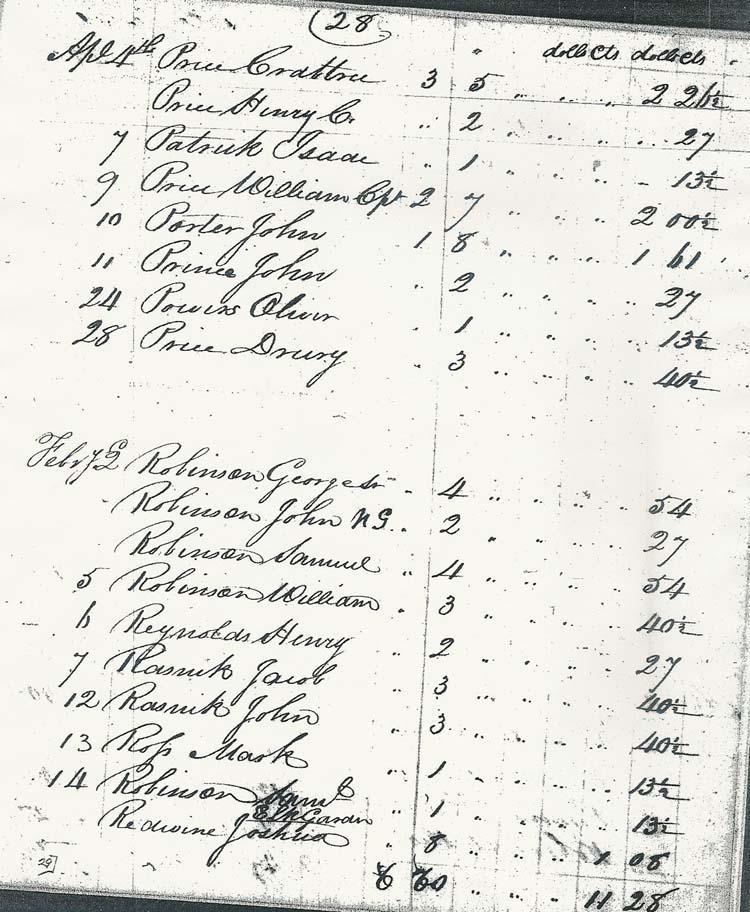 28
" dolls Cts dolls Cts
Apl 4th Price Crabtree 3 5 " " " 2 26½
Price Henry C. " 2 " " " " 27
7 Patrick Isaac " 1 " " " " 13½
9 Price William Cpt 2 7 " " " 2 00½
10 Porter John 1 8 " " " 1 61
11 Prince John " 2 " " " " 27
24 Powers Oliver " 1 " " " " 13½
28 Price Drury " 3 " " " " 40½
Feby 2 Robinson George Sr " 4 " " " " 54
Robinson John N G. " 2 " " " " 27
Robinson Samuel " 4 " " " " 54
5 Robinson William " 3 " " " " 40½
6 Reynolds Henry " 2 " " " " 27
7 Rasnik Jacob " 3 " " " " 40½
12 Rasnik John " 3 " " " " 40½
13 Ross Mark " 1 " " " " 13½
14 Robinson Saml Elk Garden " 1 " " " " 13½
Redwine Joshua " 8 " " " 1 08
6 60 " " " 11 28
29